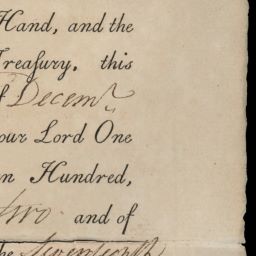 Hand, and the
Treaſury. this
of Decemr
our Lord One
n Hundred,
two and of
the Seventeenth